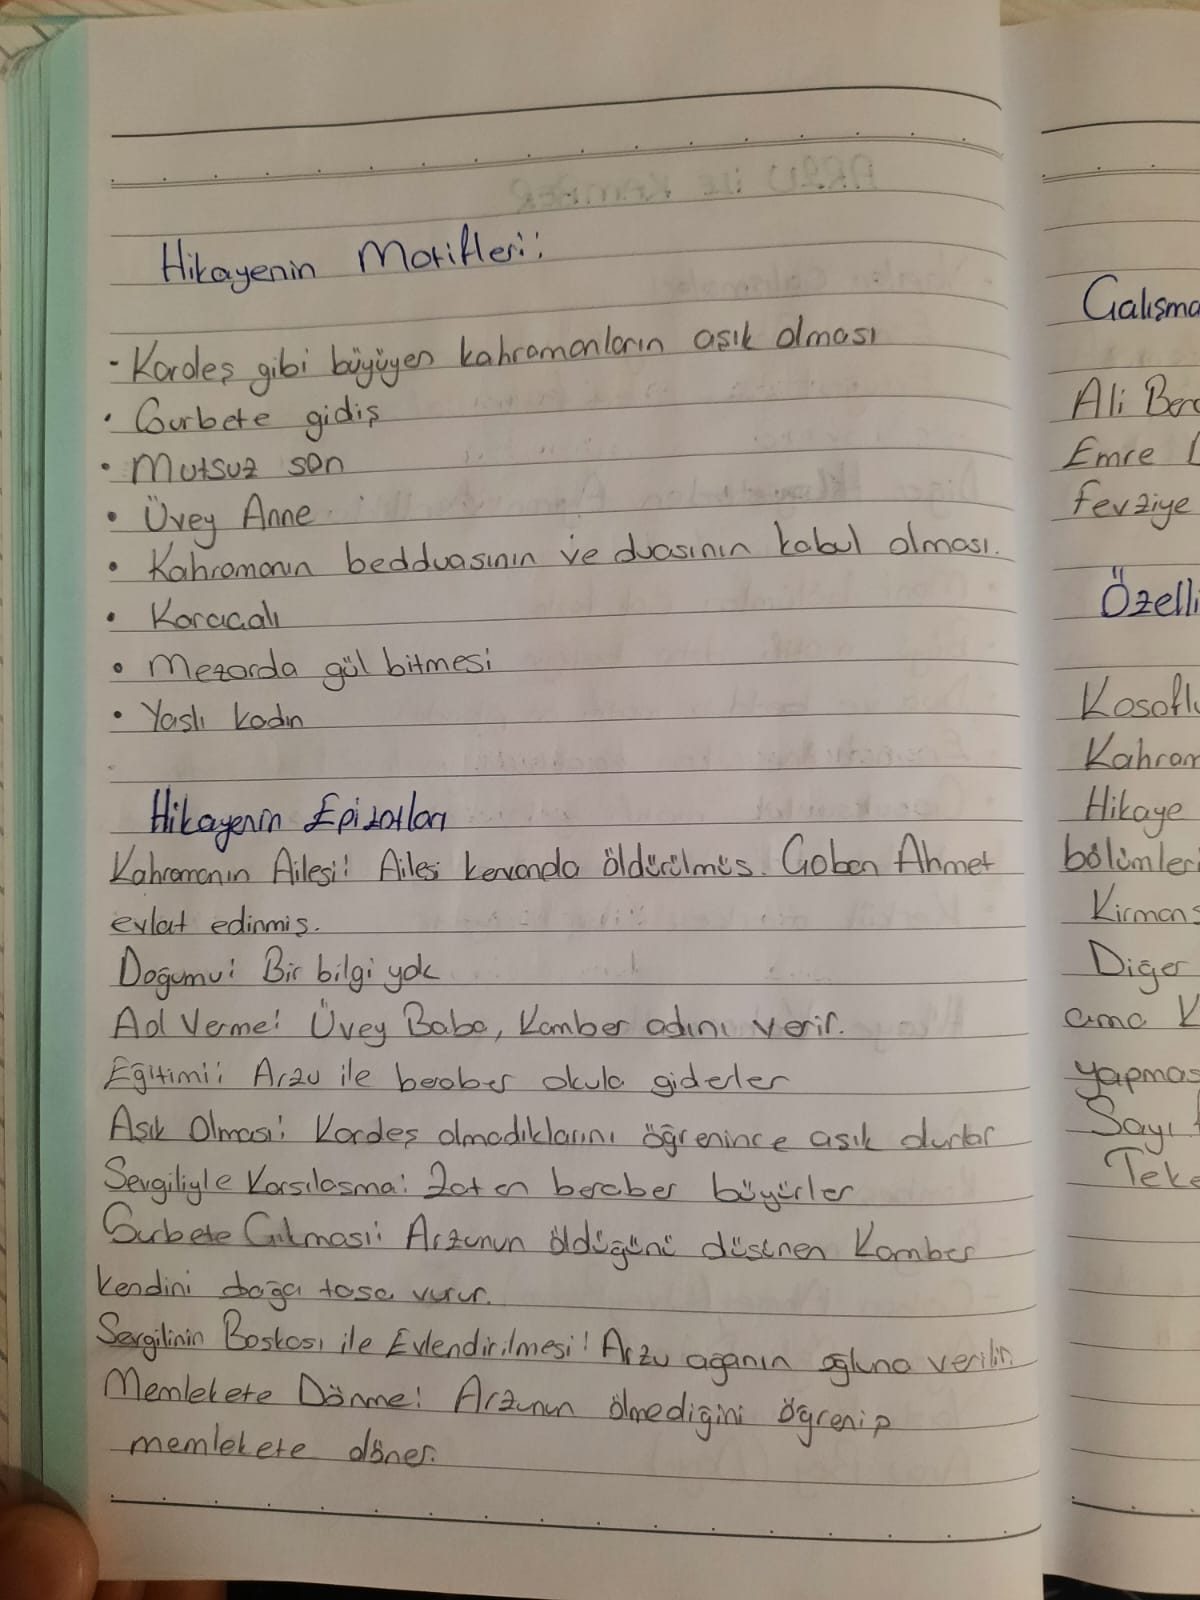 Hikayenin Motifleri:
- Kardeş gibi büyüyen kahramanların aşık olması
• Gurbete gidiş
• Mutsuz son
• Üvey Anne
• Kahramanın bedduasının ve duasının kabul olması.
• Karaçalı
• Mezarda gül bitmesi
• Yaşlı kadın
Hikayenin Epizotları
Kahramanın Ailesi: Ailesi kervanda öldürülmüş. Çoban Ahmet
evlat edinmiş.
Doğumu: Bir bilgi yok
Ad Verme: Üvey Baba, Kamber adını verir.
Eğitimi: Arzu ile beraber okula giderler
Aşık Olması: Kardeş olmadıklarını öğrenince aşık olurlar
Sevgiliyle Karşılaşma: Zaten beraber büyürler
Gurbete Çıkması: Arzunun öldüğünü düşünen Kamber
kendini dağa taşa vurur.
Sevgilinin Başkası ile Evlendirilmesi: Arzu ağanın oğluna verilir.
Memlekete Dönme: Arzunun ölmediğini öğrenip
memlekete döner.
Çalışma
Ali Ber
Emre
Fevziye
Özelli
Kosoflu
Kahram
Hikaye
bölümleri
Kirmanş
Diğer
ama K
yapmas
Sayı
Teke